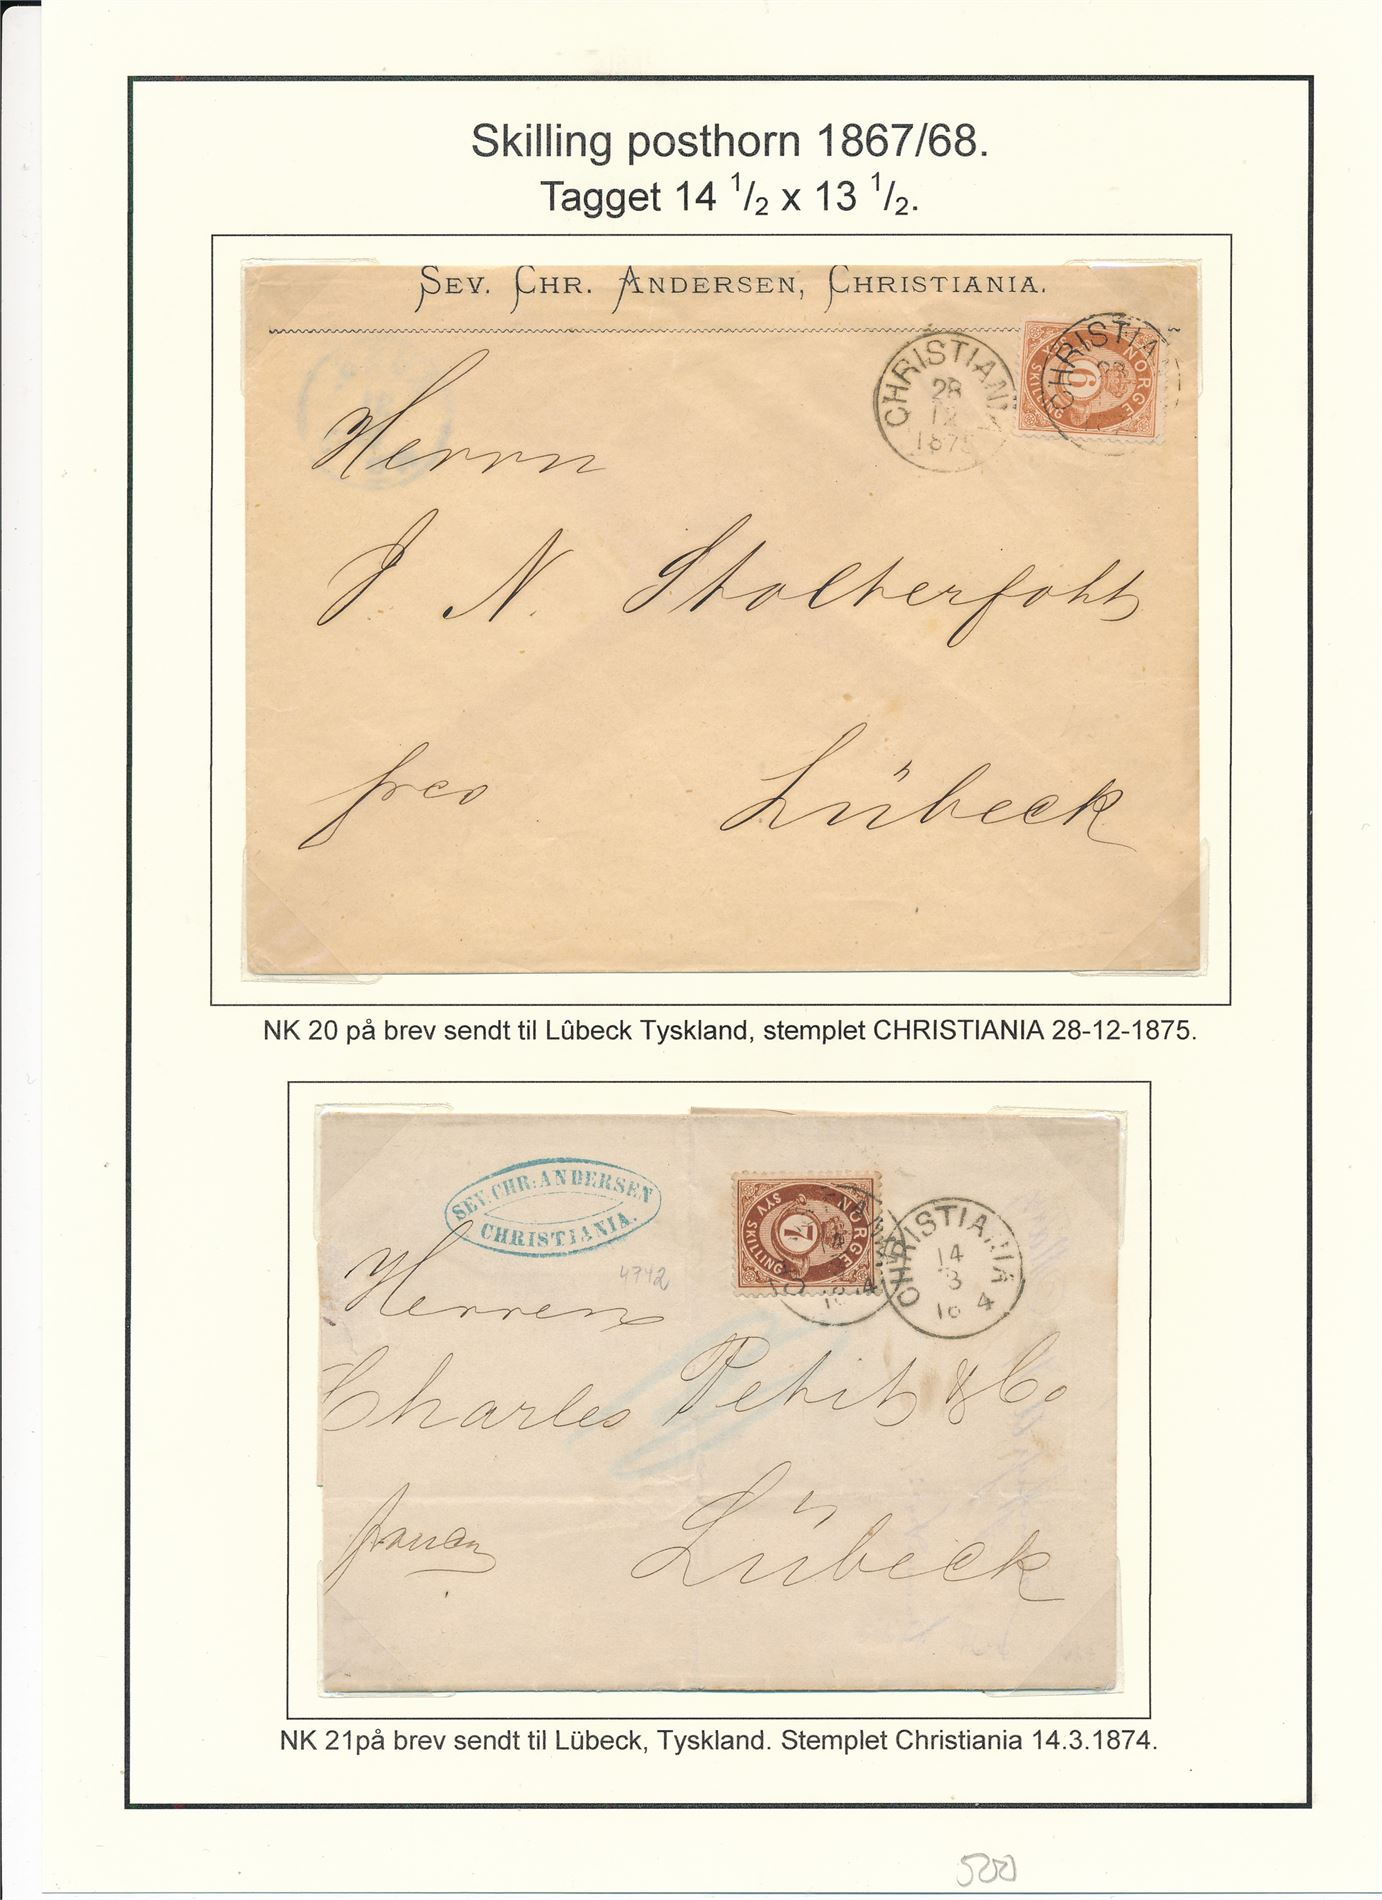 Skilling posthorn 1867/68.
Tagget 14 1/2 x 13 1/2.
SEV. CHR. ANDERSEN, CHRISTIANIA.
CHRISTIANIA
28
12
1875
NORGE
6
SEX SKILLING
CHRISTIA
28
Herrn
J. N. Stolterfoht
frco
Lübeck
NK 20 på brev sendt til Lûbeck Tyskland, stemplet CHRISTIANIA 28-12-1875.
SEV. CHR: ANDERSEN
CHRISTIANIA.
4742
NORGE
7
SYV SKILLING
CHRISTIANIA
14
3
18 4
Herren
Charles Petit & Co
Lübeck
NK 21på brev sendt til Lübeck, Tyskland. Stemplet Christiania 14.3.1874.
500